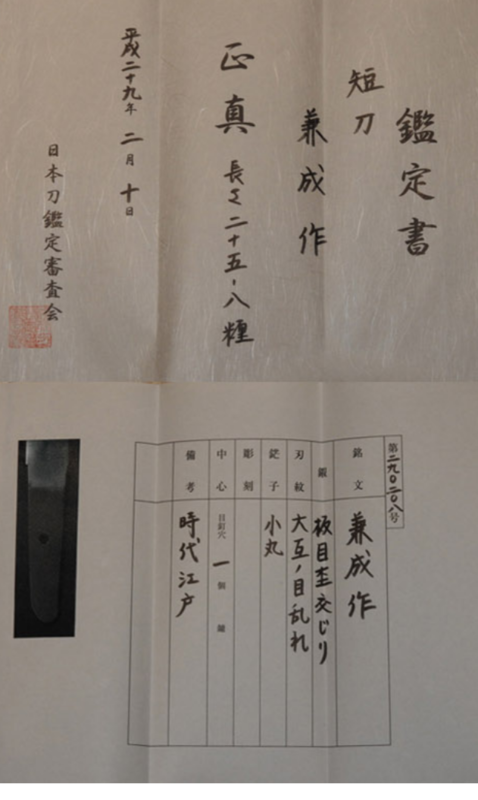 鑑定書
短刀
兼成作
正真 長サ二十五・八糎
平成二十九年 二月 十日
日本刀鑑定審査会
第二九〇二〇八号
銘文 兼成作
鍛 板目杢交じり
刃紋 大互ノ目乱れ
鋩子 小丸
彫刻
中心 目釘穴 一個 鑢
備考 時代江戸